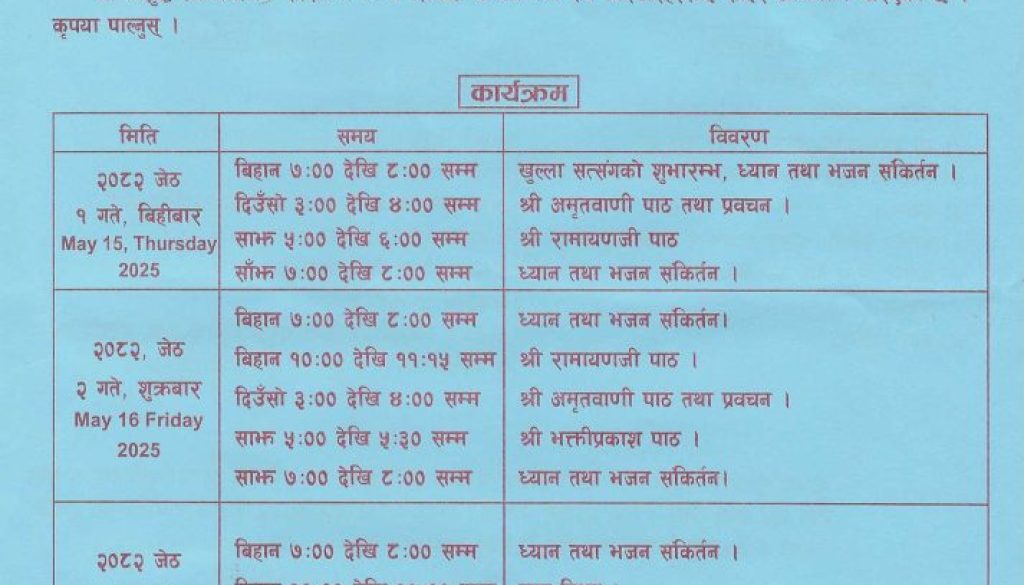 कृपया पाल्नुस् ।
कार्यक्रम
मिति समय विवरण
२०८२ जेठ
१ गते, बिहीबार
May 15, Thursday
2025
बिहान ७:०० देखि ८:०० सम्म खुल्ला सत्संगको शुभारम्भ, ध्यान तथा भजन संकिर्तन ।
दिउँसो ३:०० देखि ४:०० सम्म श्री अमृतवाणी पाठ तथा प्रवचन ।
साझ ५:०० देखि ६:०० सम्म श्री रामायणजी पाठ
साँझ ७:०० देखि ८:०० सम्म ध्यान तथा भजन संकिर्तन ।
२०८२, जेठ
२ गते, शुक्रबार
May 16 Friday
2025
बिहान ७:०० देखि ८:०० सम्म ध्यान तथा भजन संकिर्तन।
बिहान १०:०० देखि ११:१५ सम्म श्री रामायणजी पाठ ।
दिउँसो ३:०० देखि ४:०० सम्म श्री अमृतवाणी पाठ तथा प्रवचन ।
साझ ५:०० देखि ५:३० सम्म श्री भक्तीप्रकाश पाठ ।
साझ ७:०० देखि ८:०० सम्म ध्यान तथा भजन संकिर्तन।
२०८२ जेठ
बिहान ७:०० देखि ८:०० सम्म ध्यान तथा भजन संकिर्तन ।